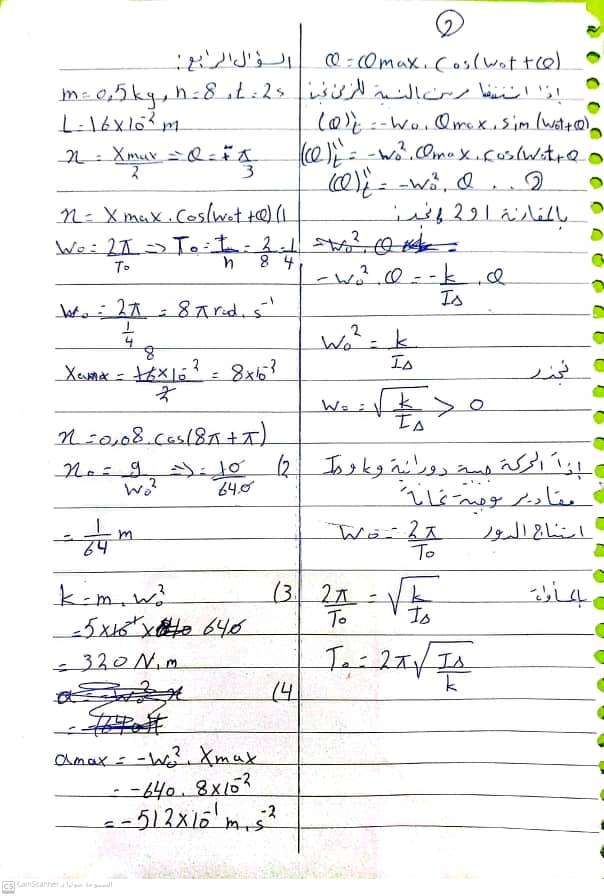 2
θ = θmax. Cos(wot+φ)
إذا اشتققنا مرتين بالنسبة للزمن نجد
(θ)'t = -wo. θmax. sin(wot+φ)
(θ)''t = -wo². θmax. cos(wot+φ
(θ)''t = -wo². θ . . . 2
بالمقارنة 1 و 2 نجد:
-wo². θ = -k/IΔ . θ
wo² = k/IΔ
نجذر
wo = √(k/IΔ) > 0
إذاً الحركة جيبية دورانية و k و IΔ
مقادير موجبة ثابتة
استنتاج الدور wo = 2π/To
بالمساواة 2π/To = √(k/IΔ)
To = 2π√(IΔ/k)
السؤال الرابع:
m = 0,5 kg, n = 8, t = 2s
L = 16×10⁻² m
x = Xmax/2 ⇒ φ = ∓ π/3
x = Xmax. Cos(wot+φ) (1
wo = 2π/To ⇒ To = t/n = 2/8 = 1/4
wo = 2π/(1/4) = 8π rad. s⁻¹
Xmax = 16×10⁻²/2 = 8×10⁻²
x = 0,08. cos(8π+π)
xo = g/wo² ⇒ = 10/640 (2
= 1/64 m
k = m. wo² (3
= 5×10⁻¹ × 640
= 320 N.m
(4
amax = -wo². Xmax
= -640. 8×10⁻²
= -512×10⁻¹ m.s⁻²
CS CamScanner الممسوحة ضوئيا بـ